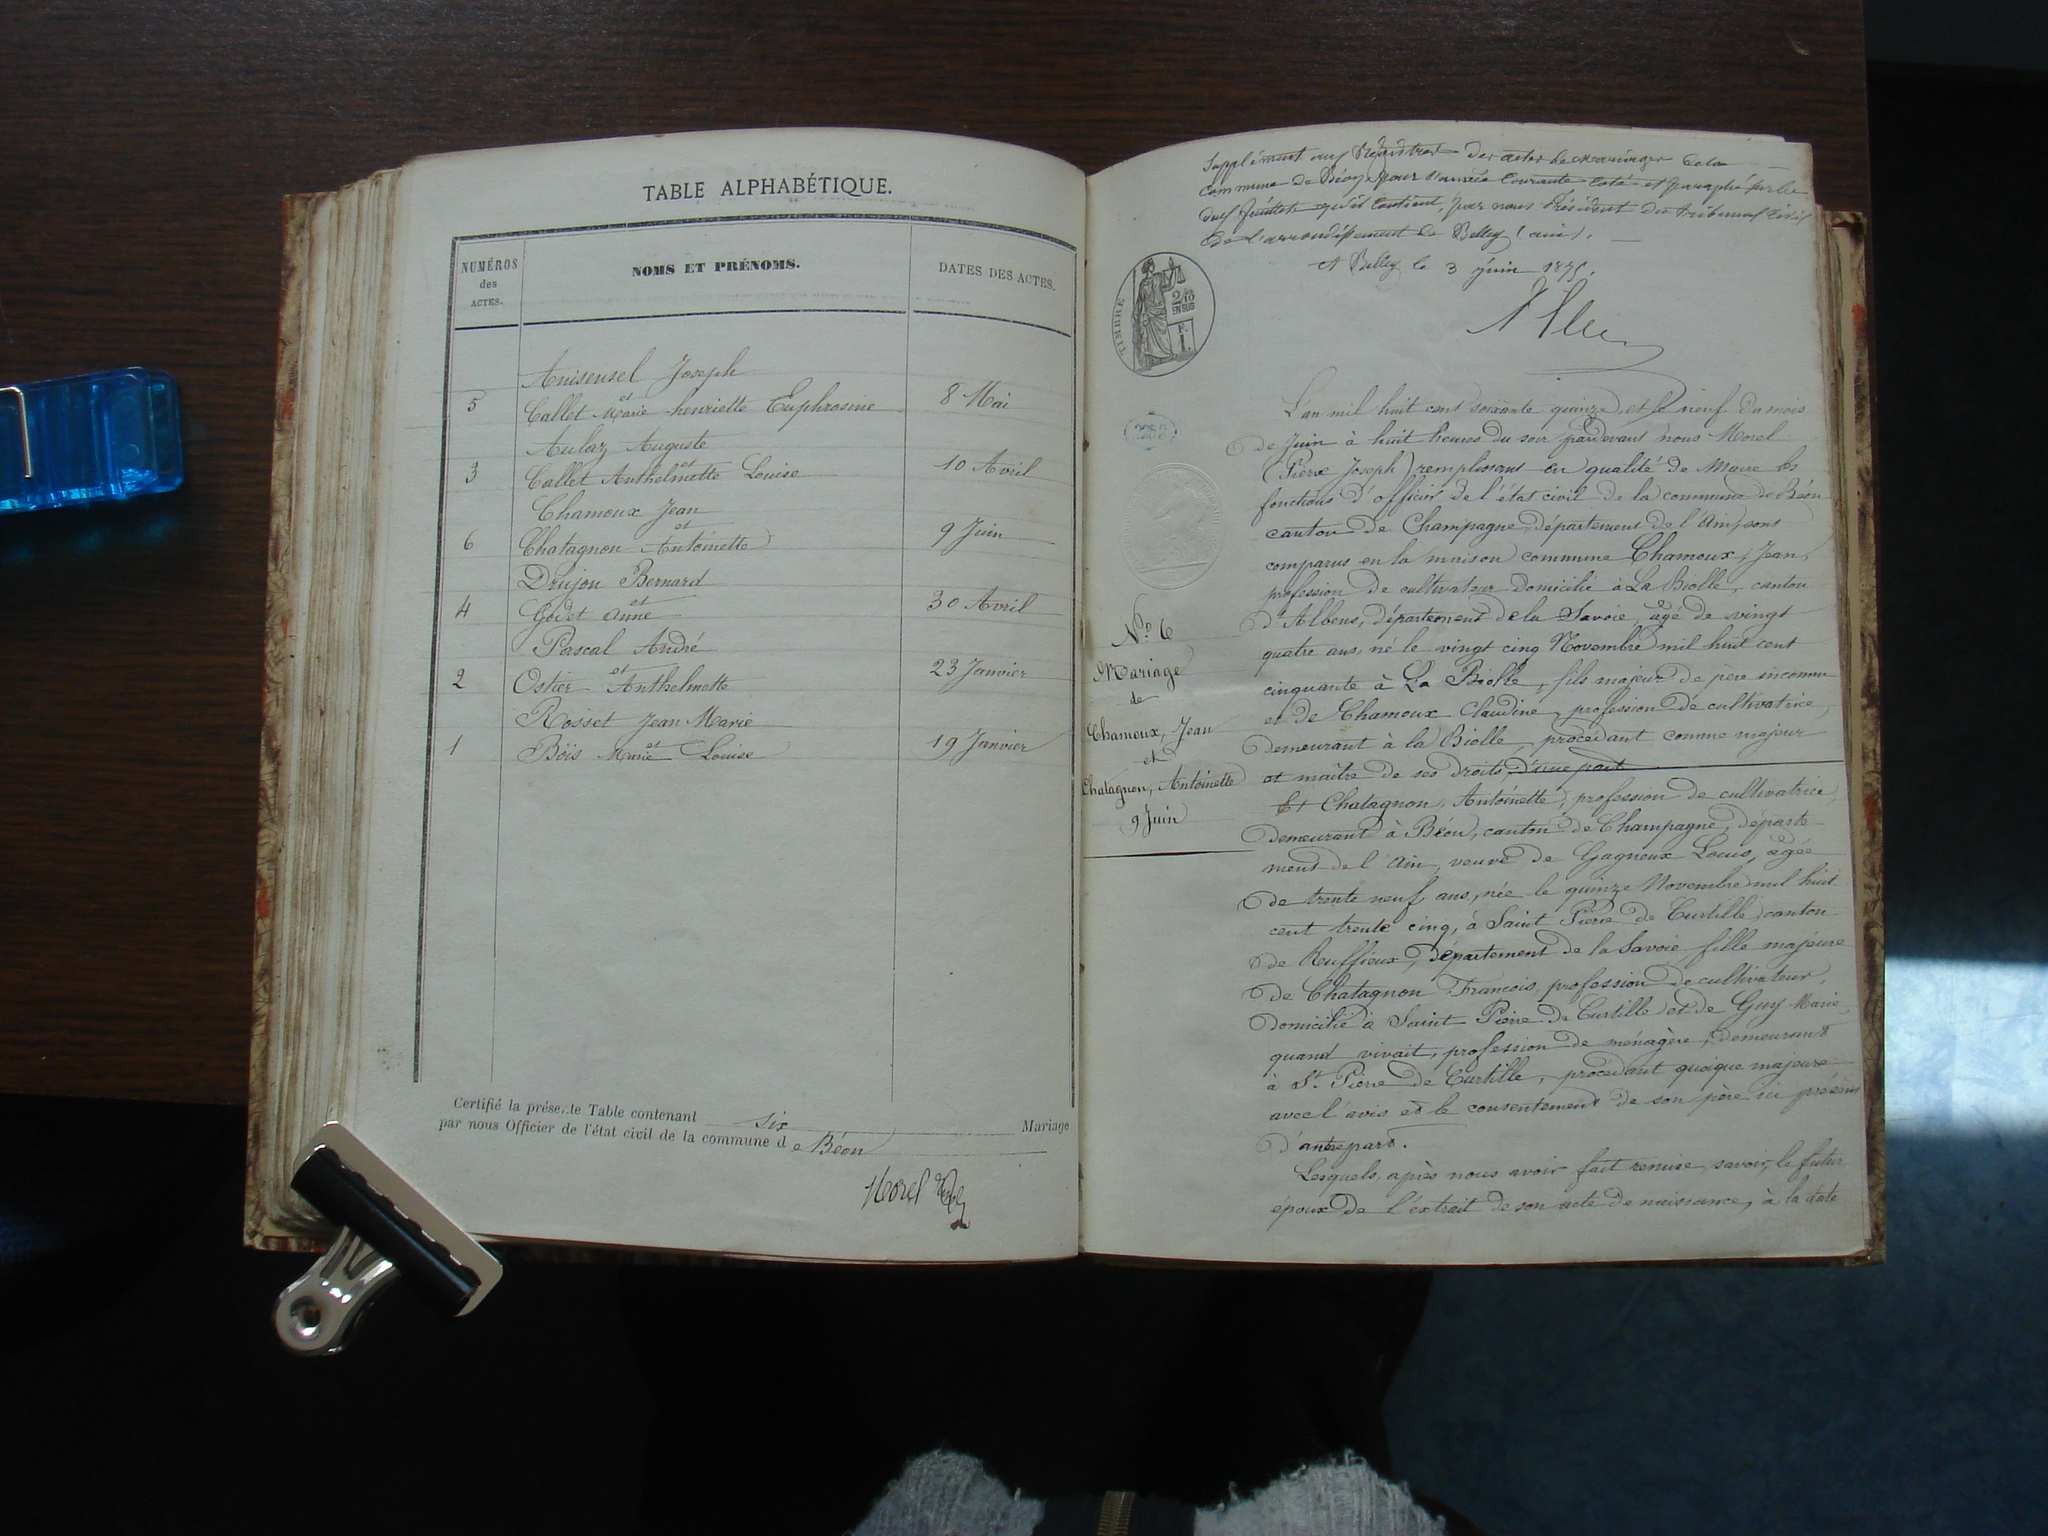 TABLE ALPHABÉTIQUE.
NUMÉROS
des
ACTES.
NOMS ET PRÉNOMS.
DATES DES ACTES.
Anisensel Joseph
et
5 Callet Marie henriette Euphrosine 8 Mai
Aulaz Auguste
et
3 Callet Anthelmette Louise 10 Avril
Chamoux Jean
et
6 Chatagnon Antoinette 9 Juin
Drujon Bernard
et
4 Godet anne 30 Avril
Pascal André
et
2 Ostier Anthelmette 23 Janvier
Rosset Jean Marie
et
1 Bois Marie Louise 19 Janvier
Certifié la présente Table contenant six Mariage
par nous Officier de l'état civil de la commune de Béon
Morel
Supplément aux Registres des actes de mariages de la
commune de Béon pour l'année courante coté et paraphé sur les
deux feuillets qu'il contient, par nous Président du Tribunal Civil
de l'arrondissement de Belley (ain).
A Belley le 3 juin 1875.
TIMBRE
2/10
EN SUS
F.
1.
No 6
Mariage
de
Chamoux, Jean
et
Chatagnon, Antoinette
9 Juin
L'an mil huit cent soixante quinze et le neuf du mois
de Juin à huit heures du soir pardevant nous Morel
(Pierre Joseph) remplissant en qualité de Maire les
fonctions d'officier de l'état civil de la commune de Béon
canton de Champagne, département de l'Ain, sont
comparus en la maison commune Chamoux, Jean,
profession de cultivateur domicilié à La Biolle, canton
d'Albens, département de la Savoie, âgé de vingt
quatre ans, né le vingt cinq Novembre mil huit cent
cinquante à La Biolle, fils majeur de père inconnu
et de Chamoux Claudine, profession de cultivatrice,
demeurant à la Biolle, procédant comme majeur
et maître de ses droits, d'une part
Et Chatagnon, Antoinette, profession de cultivatrice,
demeurant à Béon, canton de Champagne, départe-
ment de l'Ain, veuve de Gagneux Louis, âgée
de trente neuf ans, née le quinze Novembre mil huit
cent trente cinq, à Saint Pierre de Curtille, canton
de Ruffieux, département de la Savoie, fille majeure
de Chatagnon François, profession de cultivateur,
domicilié à Saint Pierre de Curtille et de Guy Marie,
quand vivait, profession de ménagère, demeurant
à St Pierre de Curtille, procédant quoique majeure
avec l'avis et le consentement de son père ici présent
d'autre part.
Lesquels, après nous avoir fait remise, savoir, le futur
époux de l'extrait de son acte de naissance, à la date